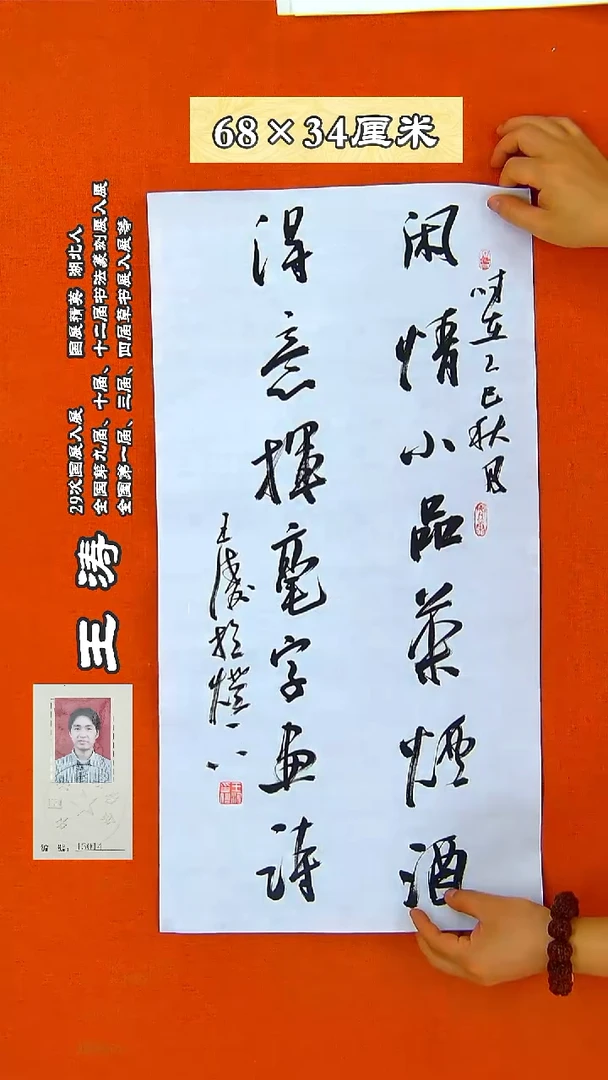 68×34厘米
闲情小品茶烟酒
得意挥毫字画诗
时在乙巳秋月
王涛
29次国展入展 国展精英 湖北人
全国第九届、十届、十二届书法篆刻展入展
全国第一届、三届、四届草书展入展等
王涛
编 号：15014